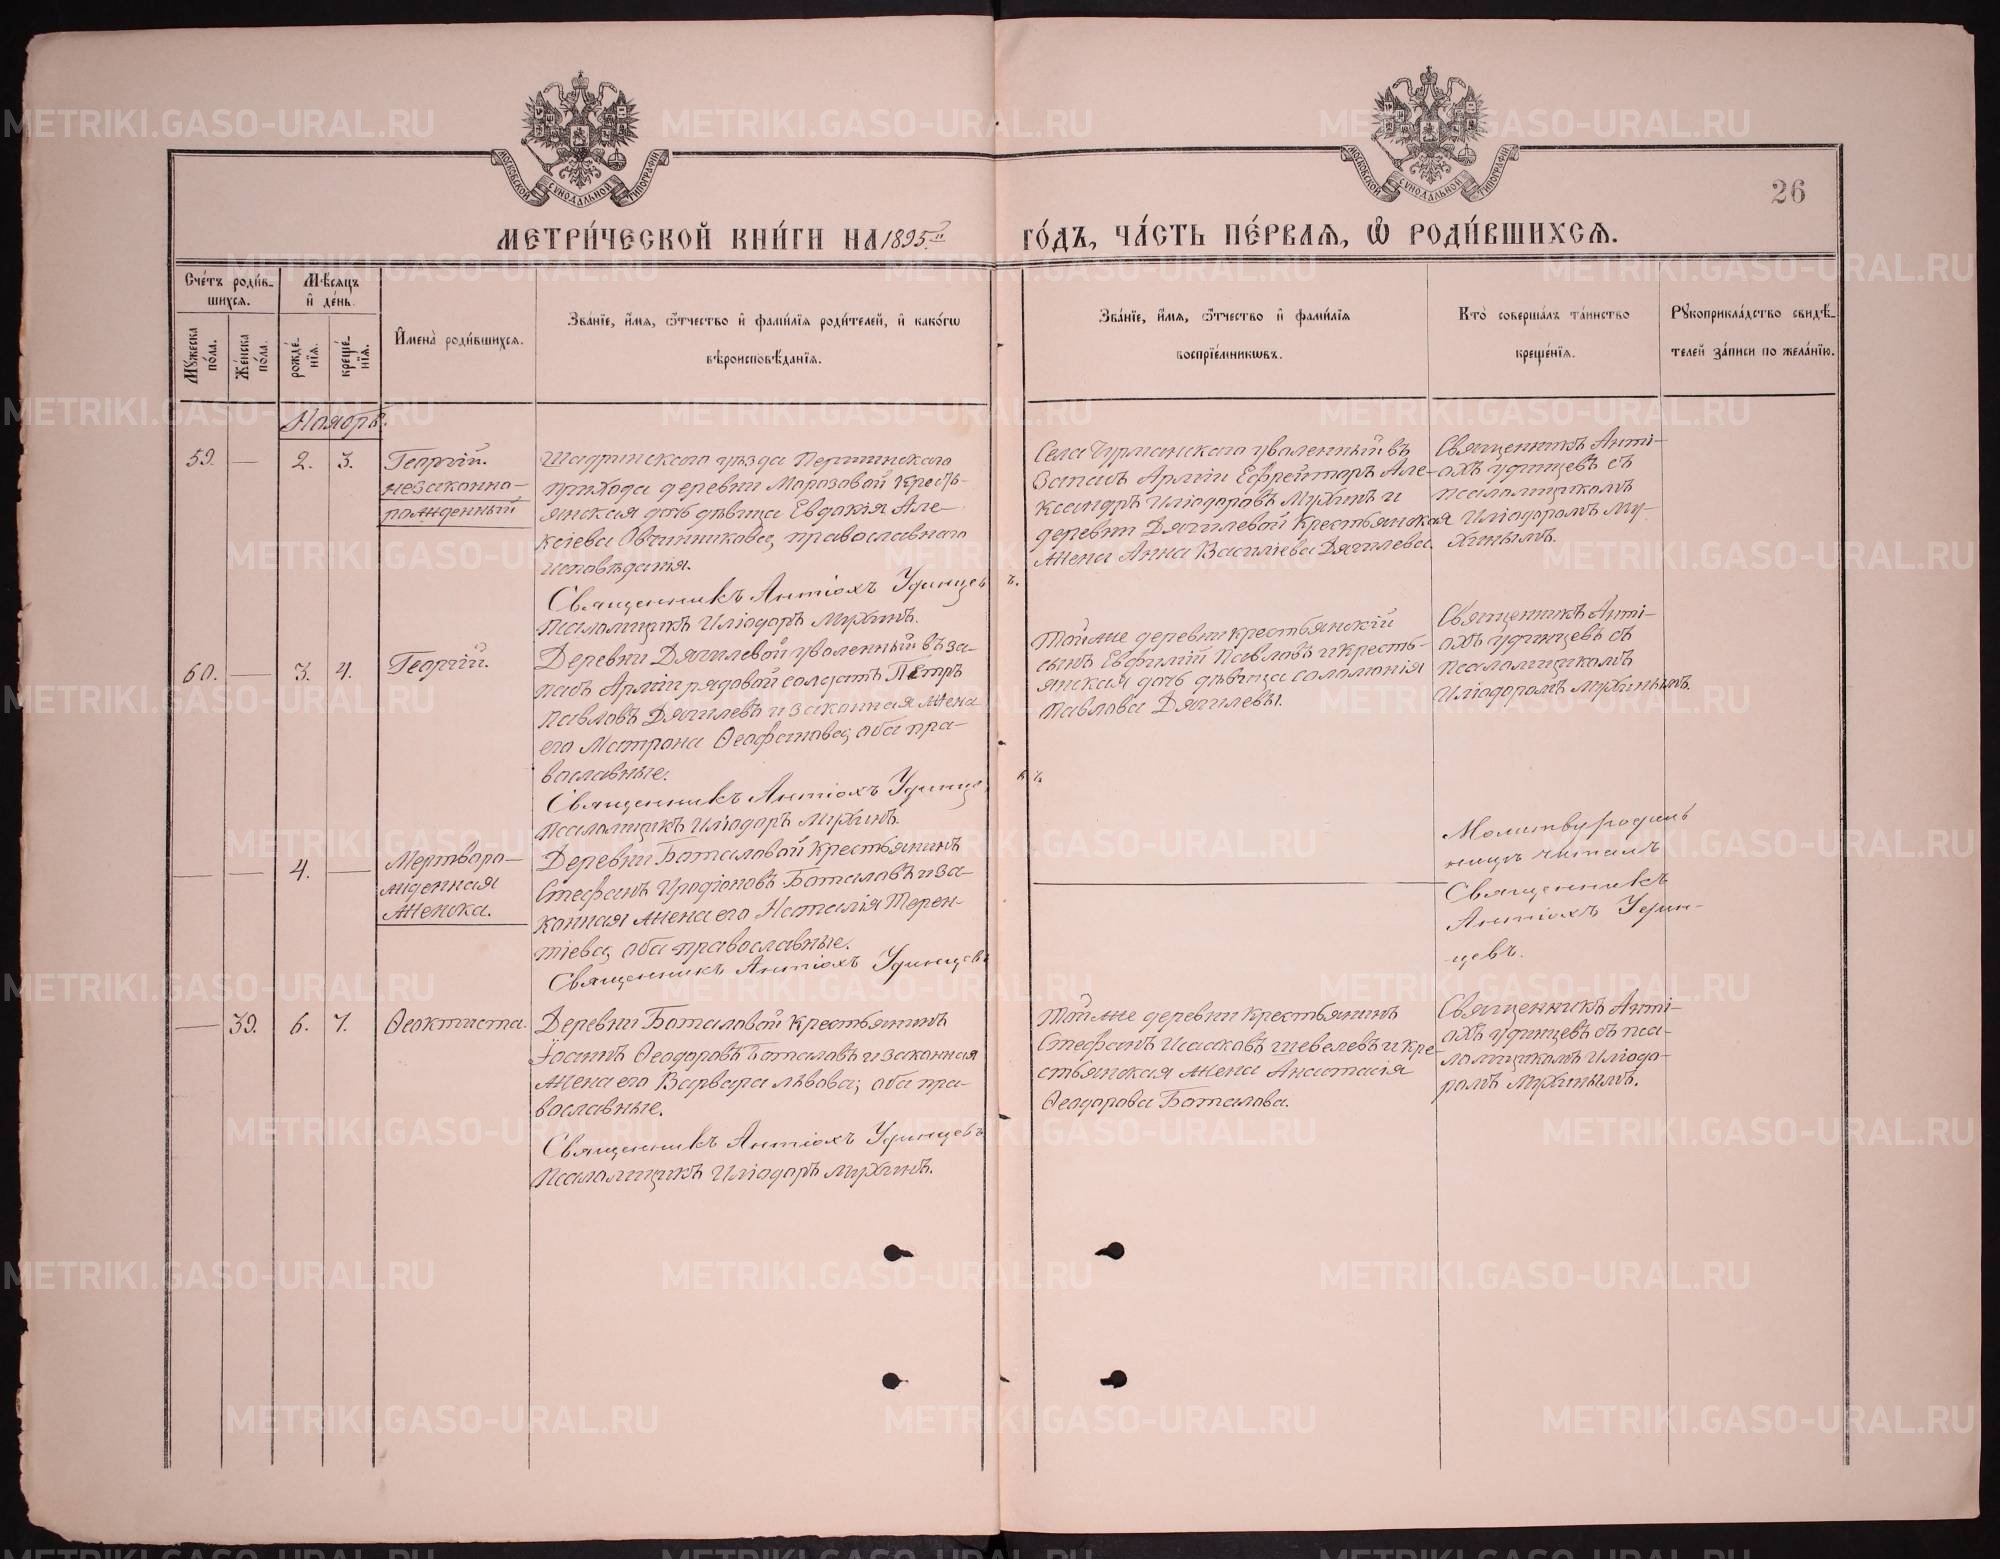 МОСКОВСКОЙ СУНОДАЛЬНОЙ ТИПОГРАФІИ
МОСКОВСКОЙ СУНОДАЛЬНОЙ ТИПОГРАФІИ
26
МЕТРИ́ЧЕСКОЙ КНИ́ГИ НА 1895.й
ГО́ДЪ, ЧА́СТЬ ПЕ́РВАЯ, Ѡ РОДИ́ВШИХСЯ.
Сче́тъ роди́в-
шихся.
Мꙋжеска по́ла.
Же́нска по́ла.
Мѣ́сяцъ
и҆ де́нь.
рожде́-
нїя.
креще́-
нїя.
И҆мена̀ роди́вшихся.
Зва́нїе, и҆́мя, ѻ҆́тчество и҆ фами́лїя роди́телей, и҆ како́гѡ
вѣроисповѣ́данїя.
Зва́нїе, и҆́мя, ѻ҆́тчество и҆ фами́лїя
воспрїе́мникѡвъ.
Кто̀ соверша́лъ та́инство
креще́нїя.
Рꙋкоприкла́дство свидѣ́-
телей за́писи по жела́нїю.
Ноябрь.
59. — 2. 3.
Георгій.
незаконно-
рожденный
Шадринскаго уѣзда Першинскаго
прихода деревни Морозовой Кресть-
янская дочь дѣвица Евдокія Але-
ксіева Овчинникова, православнаго
исповѣданія.
Священникъ Антіохъ Удинцевъ.
Псаломщикъ Иліодоръ Мухинъ.
Села Чурманскаго уволенный въ
Запасъ Арміи Ефрейторъ Але-
ксандръ Иліодоровъ Мухинъ и
деревни Дягилевой Крестьянская
жена Анна Васильева Дягилева.
Священникъ Анті-
охъ Удинцевъ съ
псаломщикомъ
Иліодоромъ Му-
хинымъ.
60. — 3. 4.
Георгій.
Деревни Дягилевой уволенный въ за-
пасъ Арміи рядовой солдатъ Петръ
Павловъ Дягилевъ и законная жена
его Матрона Ѳеофанова, оба пра-
вославные.
Священникъ Антіохъ Удинцевъ
Псаломщикъ Иліодоръ Мухинъ.
Той же деревни крестьянскій
сынъ Евфимій Павловъ и кресть-
янская дочь дѣвица Соломонія
Павлова Дягилевы.
Священникъ Анті-
охъ Удинцевъ съ
псаломщикомъ
Иліодоромъ Мухинымъ.
— — 4. —
Мертворо-
жденная
женска.
Деревни Боталовой Крестьянинъ
Стефанъ Иродіоновъ Боталовъ и за-
конная жена его Наталія Терен-
тіева, оба православные.
Священникъ Антіохъ Удинцевъ
Молитву родиль
ницѣ читалъ
Священникъ
Антіохъ Удин-
цевъ.
— 39. 6. 7.
Ѳеоктиста.
Деревни Боталовой крестьянинъ
Іоаннъ Ѳеодоровъ Боталовъ и законная
жена его Варвара Львова, оба пра-
вославные.
Священникъ Антіохъ Удинцевъ
Псаломщикъ Иліодоръ Мухинъ.
Той же деревни крестьянинъ
Стефанъ Исааковъ Шевелевъ и кре-
стьянская жена Анастасія
Ѳеодорова Боталова.
Священникъ Анті-
охъ Удинцевъ съ пса-
ломщикомъ Иліодо-
ромъ Мухинымъ.
METRIKI.GASO-URAL.RU